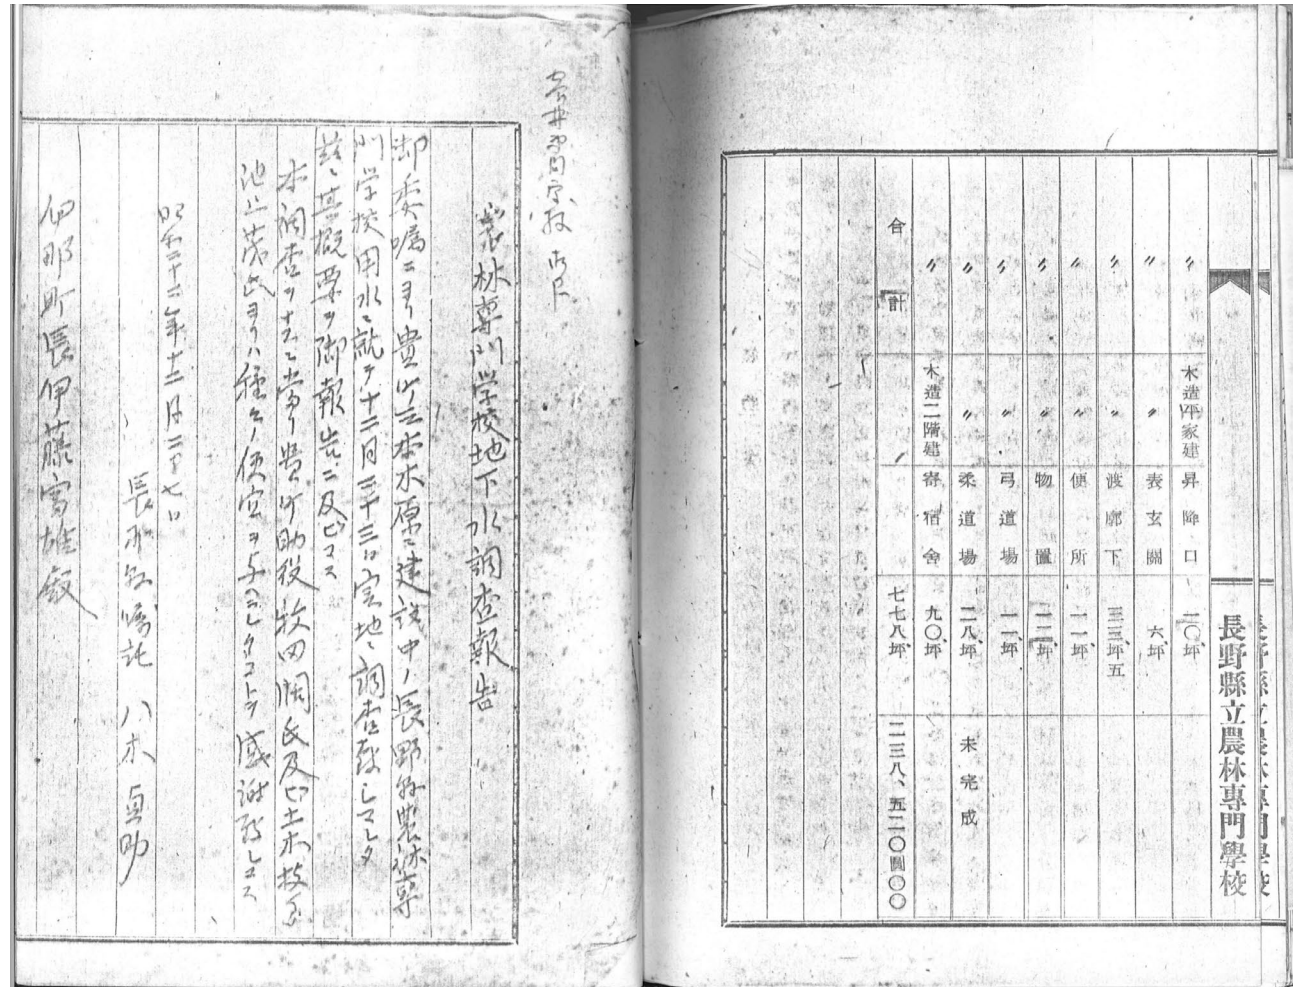 長野縣立農林專門學校
〃 木造平家建 昇降口 二〇、坪
〃 〃 表玄關 六、坪
〃 〃 渡廓下 三三、坪五
〃 〃 便所 一一、坪
〃 〃 物置 一二、坪
〃 〃 弓道場 一一、坪
〃 〃 柔道場 二八、坪 未完成
〃 木造二階建 寄宿舍 九〇、坪
合計 七七八、坪 二三八、五二〇圓〇〇
農林専門学校地下水調査報告
御委嘱ニヨリ貴町三本木原ニ建設中ノ長野縣農林専
門学校用水ニ就テ十二月二十三日実地ニ調査致シマシタ
茲ニ其概要ヲ御報告ニ及ビマス
本調査ヲナスニ當リ貴町助役牧田 氏及ビ土木技手
池上茂氏ヨリハ種々ノ便宜ヲ与ヘラレタコトヲ感謝致シマス
昭和二十二年十二月二十七日
長野縣嘱託 八木貞助
伊那町長伊藤 雄殿